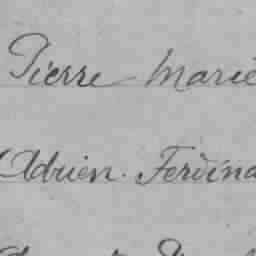 Pierre Marie
Adrien. Ferdina